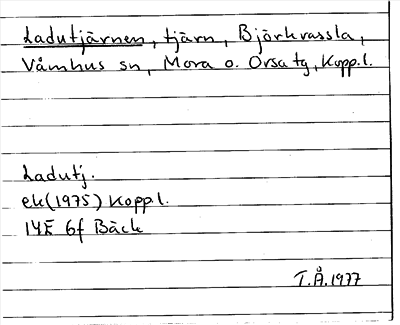 Ladutjärnen, tjärn, Björkvassla,
Våmhus sn, Mora o. Orsa tg, Kopp.l.
Ladutj.
ek(1975) Kopp.l.
14E 6f Bäck
T.Å.1977